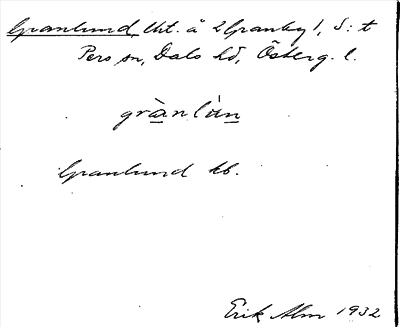 Granlund, lht. å 2 Granby 1, S:t
Pers sn, Dals hd, Österg. l.
grànlùn
Granlund kb.
Erik Alm 1932